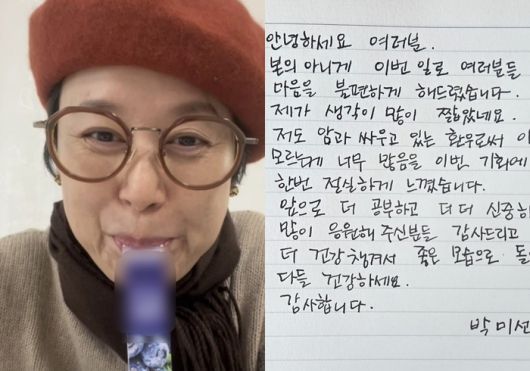 안녕하세요 여러분.
본의 아니게 이번 일로 여러분들
마음을 불편하게 해드렸습니다.
제가 생각이 많이 짧았네요.
저도 암과 싸우고 있는 환우로써 이
모르는게 너무 많음을 이번 기회에
한번 절실하게 느꼈습니다.
앞으로 더 공부하고 더 더 신중히
많이 응원해 주신분들 감사드리고
더 건강챙겨서 좋은 모습으로 돌
다들 건강하세요.
감사합니다.
박미선